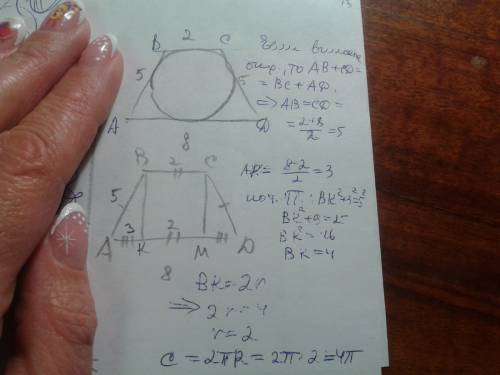 B 2 C
5 5
A D
8
Если вписана
окр., то AB+CD=
=BC+AD.
=> AB=CD=
= 2+8/2 = 5
B 2 C
5
A 3 K 2 M D
8
AK = 8-2/2 = 3
по т. П.: BK²+3²=5²
BK²+9=25
BK²=16
BK=4
BK=2r
=> 2r=4
r=2
C=2πR=2π·2=4π